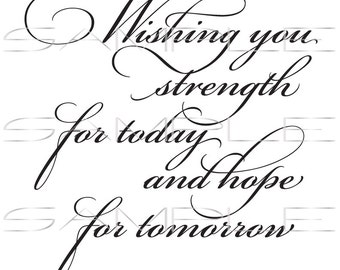 Wishing you
strength
for today
and hope
for tomorrow
SAMPLE
SAMPLE
SAMPLE
SAMPLE